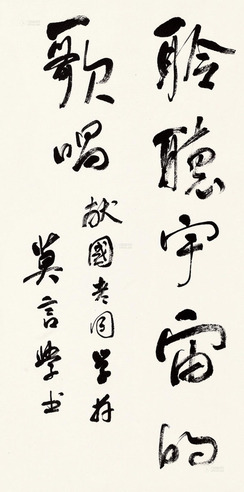 聆聽宇宙的
歌唱
献國老同学存
莫言學书